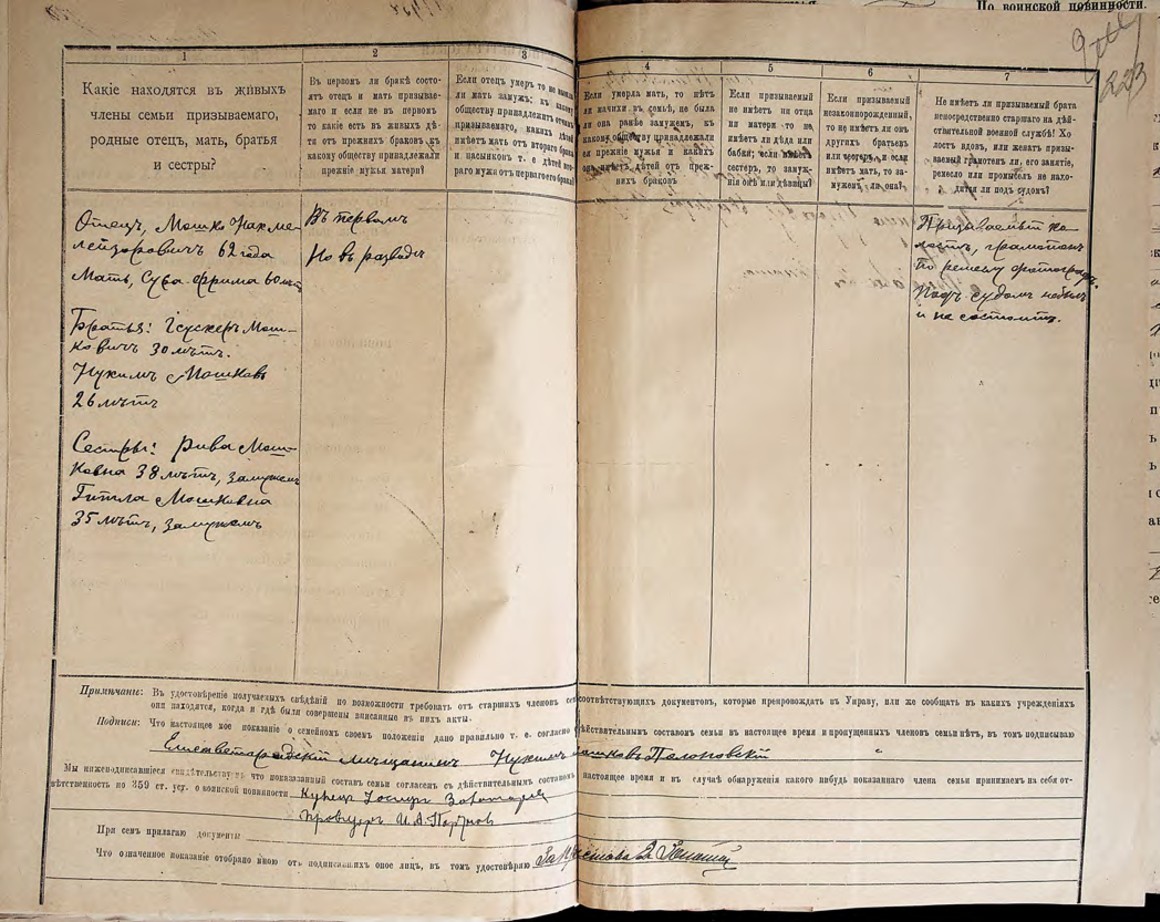 По воинской повинности.
223
1
2
3
4
5
6
7
Какіе находятся въ живыхъ
члены семьи призываемаго,
родные отецъ, мать, братья
и сестры?
Въ первомъ ли бракѣ состо-
ятъ отецъ и мать призывае-
маго и если не въ первомъ
то какіе есть въ живыхъ дѣ-
ти отъ прежнихъ браковъ къ
какому обществу принадлежали
прежніе мужья матери?
Если отецъ умеръ то не вышла
ли мать замужъ: къ какому
обществу принадлежитъ отчимъ
призываемаго, какихъ дѣтей
имѣетъ мать отъ втораго брака
и пасынковъ т. е дѣтей вто-
раго мужа отъ перваго его брака?
Если умерла мать, то нѣтъ
ли мачихи въ семьѣ, не была
ли она ранѣе замужемъ, къ
какому обществу принадлежали
ея прежніе мужья и какихъ
она имѣетъ дѣтей отъ преж-
нихъ браковъ
Если призываемый
не имѣетъ ни отца
ни матери то не
имѣетъ ли дѣда или
бабки; если имѣетъ
сестеръ, то замуж-
нія онѣ или дѣвицы?
Если призываемый
незаконнорожденный,
то не имѣетъ ли онъ
другихъ братьевъ
или сестеръ, и если
имѣетъ мать, то за-
мужемъ ли она?
Не имѣетъ ли призываемый брата
непосредственно старшаго на дѣй-
ствительной военной службѣ! Хо
лостъ вдовъ, или женатъ призы-
ваемый грамотенъ ли, его занятіе,
ремесло или промыселъ не нахо-
дится ли подъ судомъ?
Отецъ, Мошко Нахме-
лейзеровичъ 62 года
Мать, Сура Фрима 60 лѣтъ
Братья: Іускеръ Мош-
ковичъ 30 лѣтъ.
Нухимъ Мошковъ
26 лѣтъ
Сестры: Рива Мош-
ковна 38 лѣтъ, замужемъ
Гитля Мошковна
35 лѣтъ, замужемъ
Въ первомъ
Но въ разводѣ
Призываемый хо-
лостъ, грамотенъ
По ремеслу фотографъ.
Подъ судомъ небылъ
и не состоитъ.
Примѣчаніе: Въ удостовѣреніе получаемыхъ свѣдѣній по возможности требовать отъ старшихъ членовъ соотвѣтствующихъ документовъ, которые препровождать въ Управу, или же сообщать въ какихъ учрежденіяхъ
они находятся, когда и гдѣ были совершены вписанные въ нихъ акты.
Подписи: Что настоящее мое показаніе о семейномъ своемъ положеніи дано правильно т. е. согласно дѣйствительнымъ составомъ семьи въ настоящее время и пропущенныхъ членовъ семьи нѣтъ, въ томъ подписываю
Елисаветградскій мѣщанинъ Нухимъ Мошковъ Полоновскій
Мы нижеподписавшіеся свидѣтельствуемъ что показанный составъ семьи согласенъ съ дѣйствительнымъ составомъ настоящее время и въ случаѣ обнаруженія какого нибудь показаннаго члена семьи принимаемъ на себя от-
вѣтственность по 359 ст. уст. о воинской повинности Купецъ Іосифъ
Провизоръ И. А. Портновъ
При семъ прилагаю документы
Что означенное показаніе отобрано мною отъ подписавшихъ оное лицъ, въ томъ удостовѣряю За